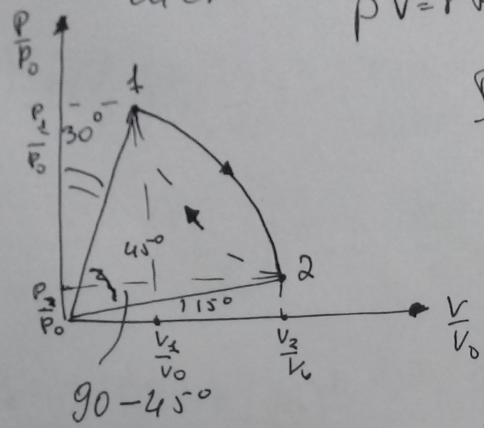 pV=
P/P₀
1
P₁/P₀
30°
45°
2
P₂/P₀
15°
V₁/V₀
V₂/V₀
V/V₀
90-45°